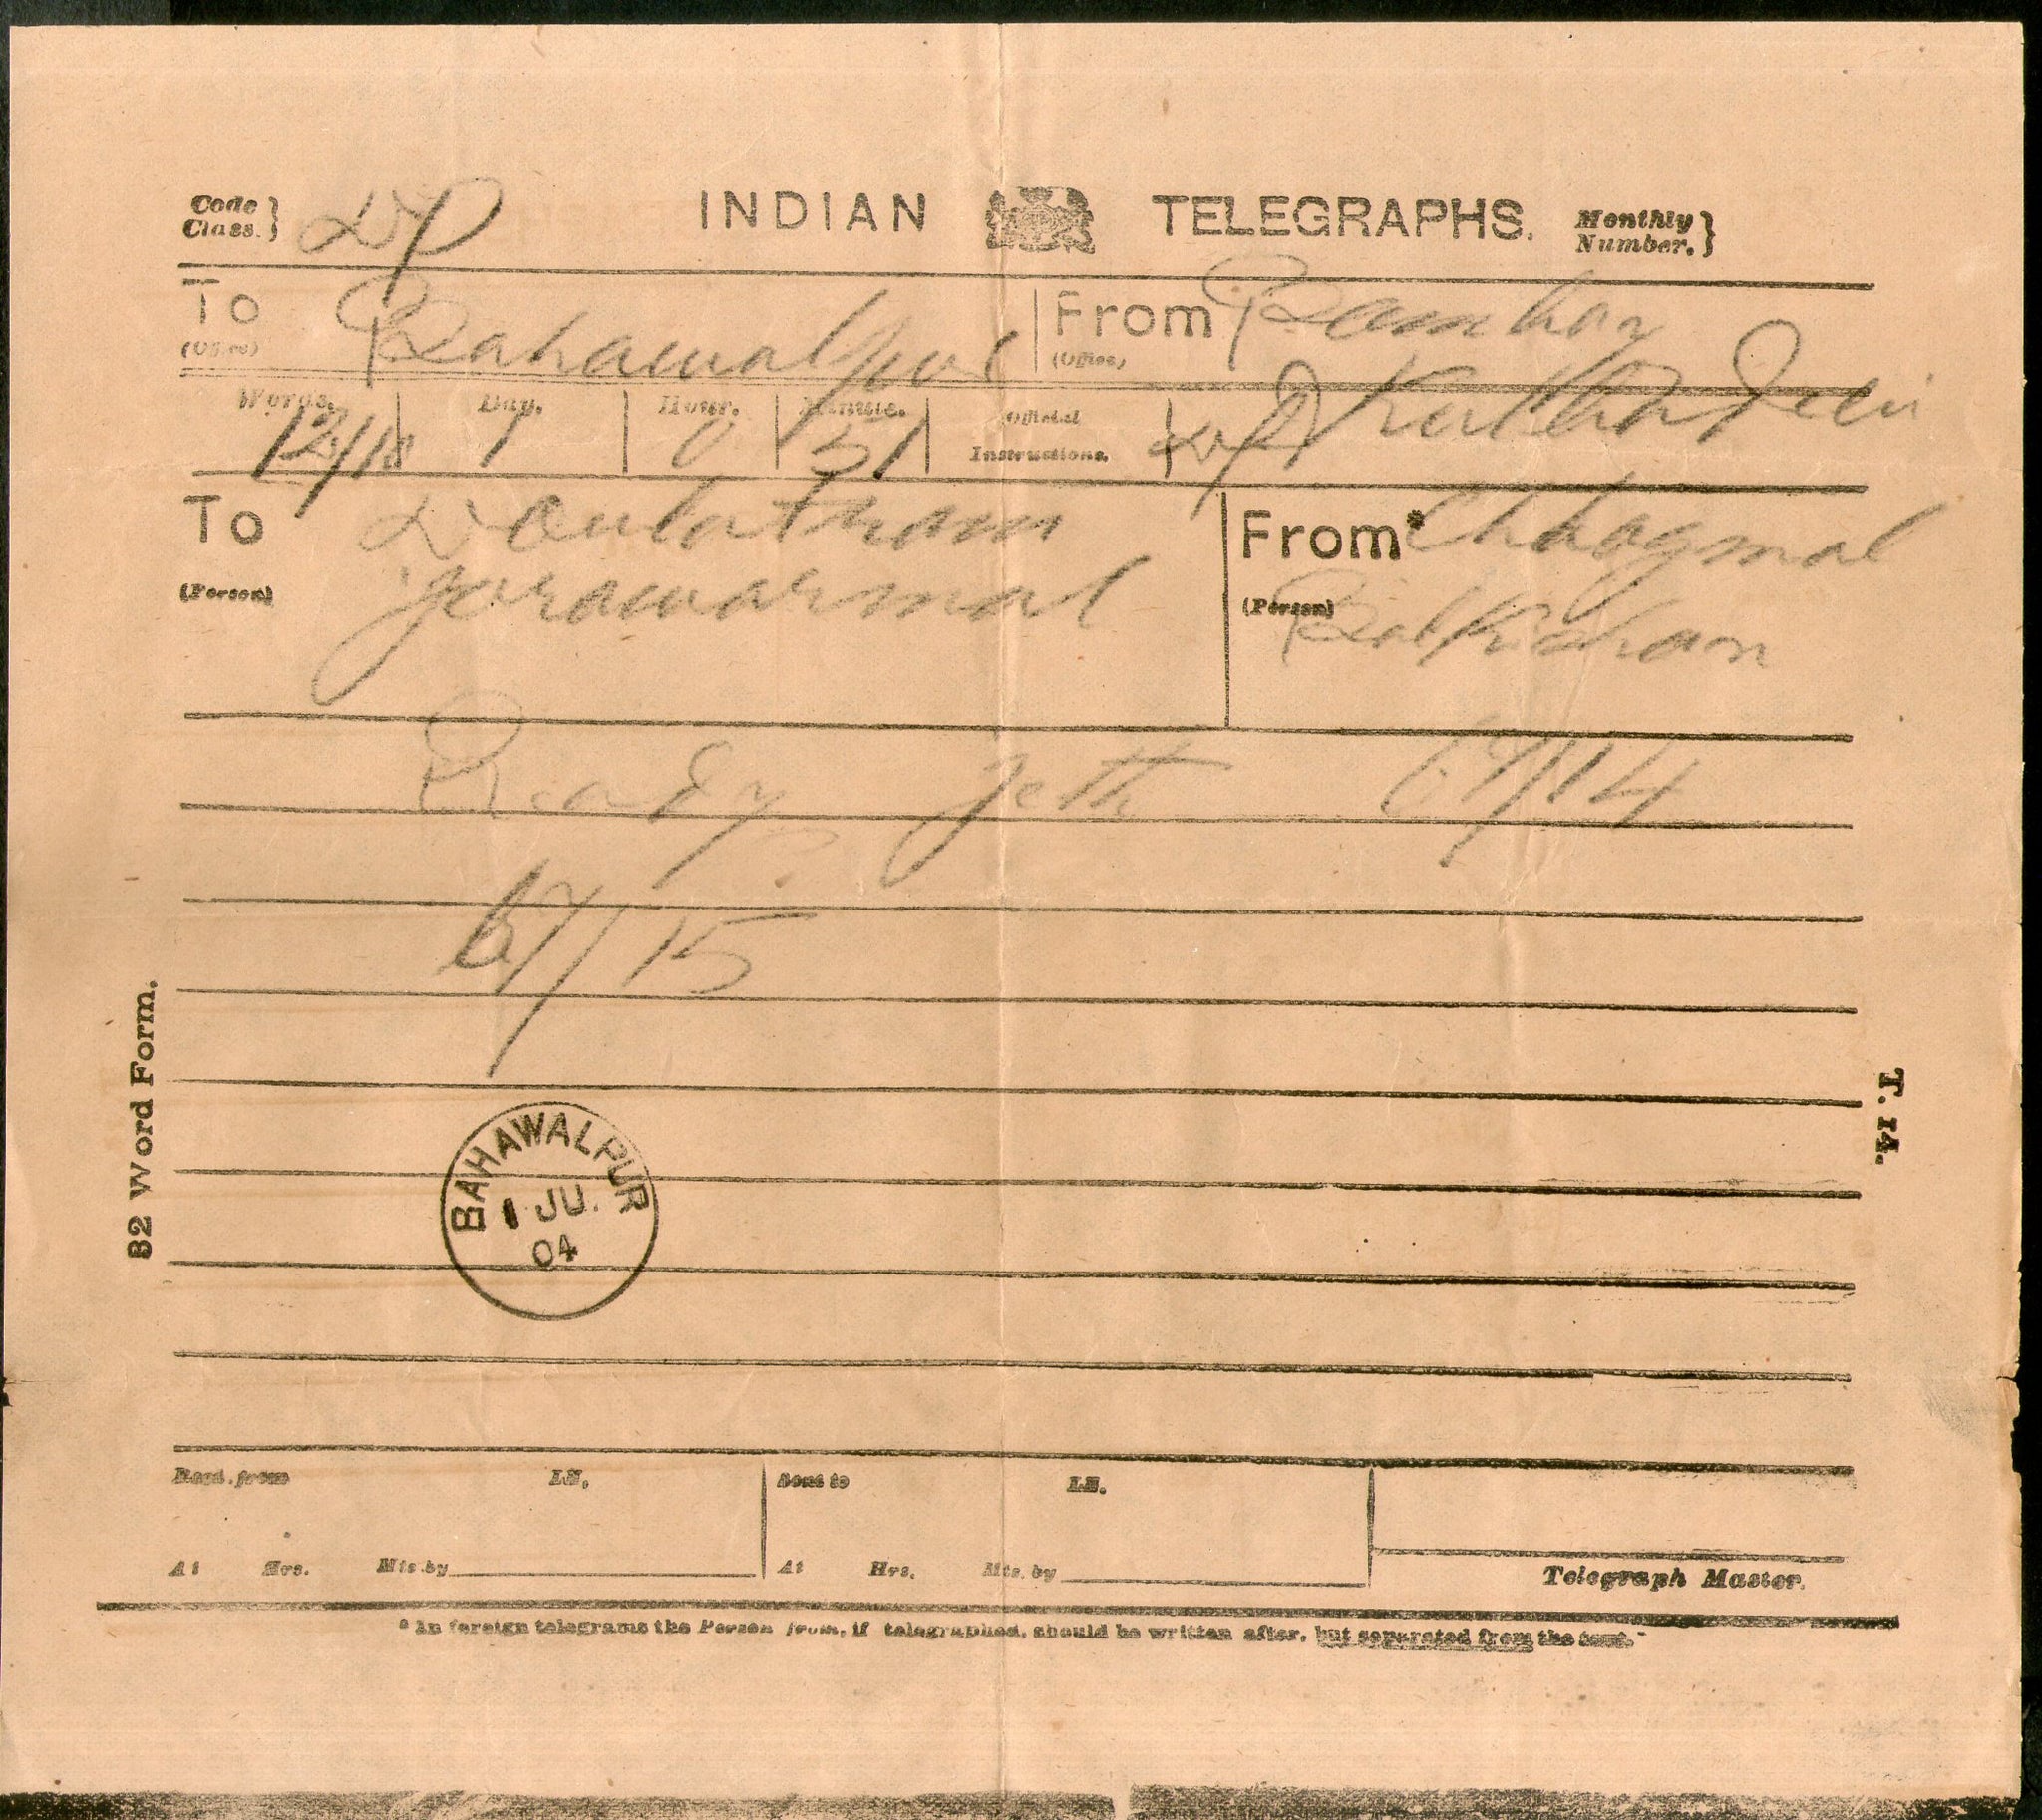 Code Class. } DP INDIAN TELEGRAPHS. Monthly Number. }
To (Office) Bahawalpur From (Office) Bombay
Words. Day. Hour. Minute. Official Instructions.
12/18 1 0 51
To (Person) Doulatram From* (Person) Chhogmal
Jorawarmal Balkishan
Ready Jeth 67/14
67/15
32 Word Form.
T. 14.
BAHAWALPUR
1 JU.
04
Recd. from LN. Sent to LN.
At Hrs. Mts. by At Hrs. Mts. by
Telegraph Master.
* In foreign telegrams the Person from, if telegraphed, should be written after, but separated from the text.